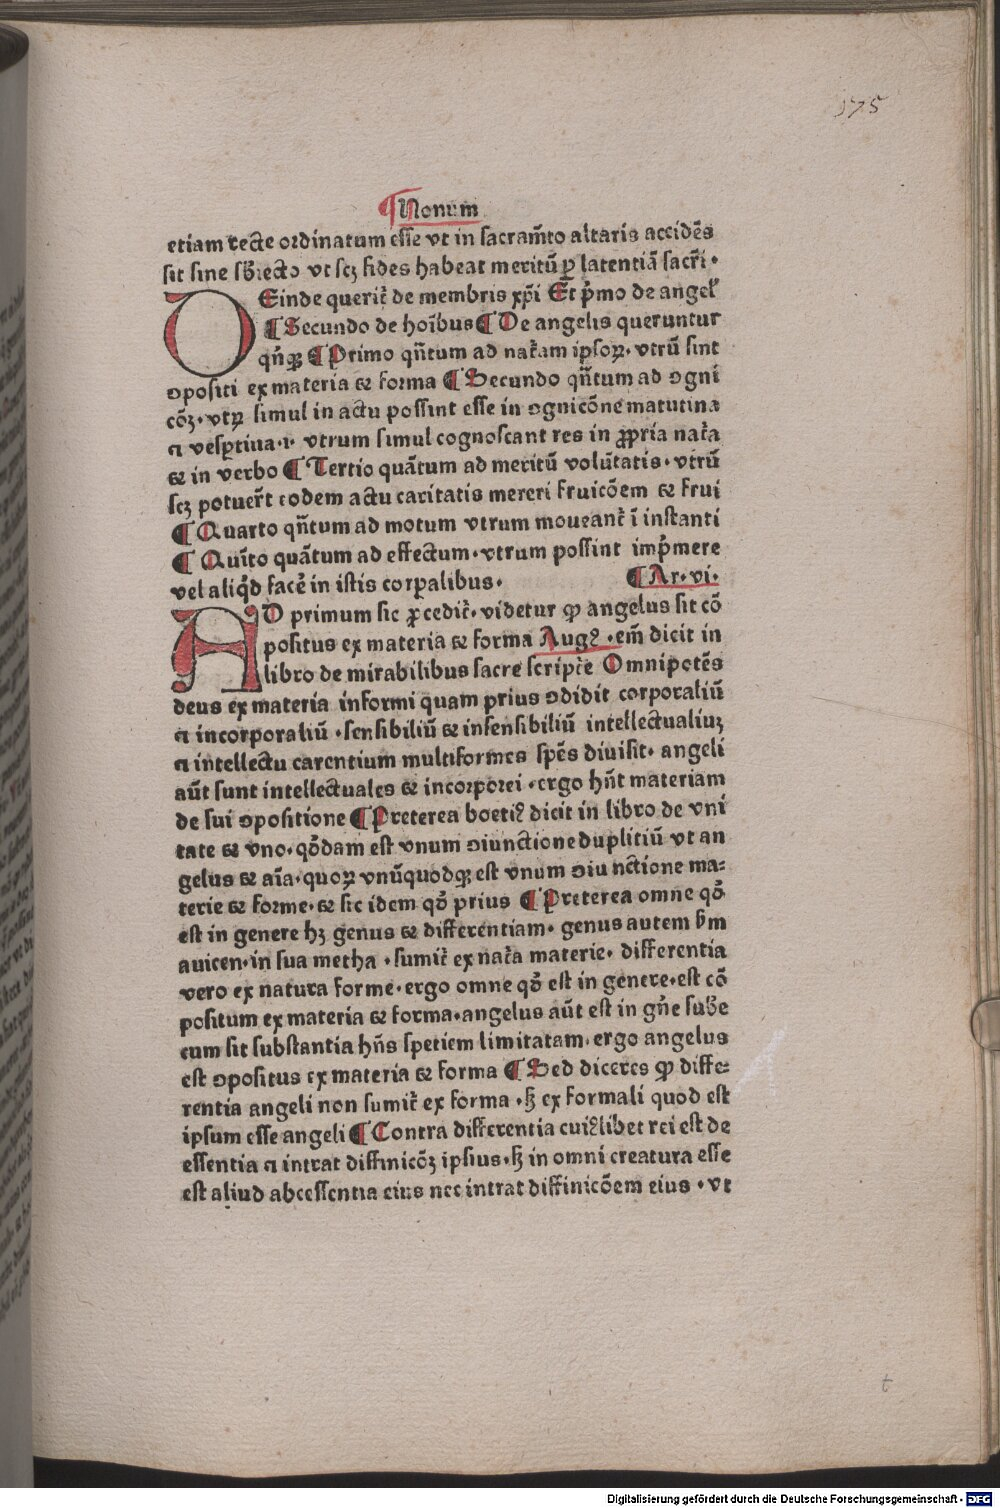 175
¶Nonum
etiam recte ordinatum esse vt in sacram̄to altaris accidēs
sit sine sb̄iecto vt scꝫ fides habeat meritū ꝑ latentiā sacr̄i ·
DEinde querit̄ de membris xp̄i Et p̄mo de angel̕
¶Secundo de hoı̄bus ¶De angelis queruntur
qn̄qꝫ ¶Primo qn̄tum ad nat̄am ipsoꝝ · vtrū sint
ꝯpositi ex materia ⁊ forma ¶Secundo qn̄tum ad ꝯgni
cōꝫ · vtꝝ simul in actu possint esse in ꝯgnicōne matutina
⁊ vesꝑtina · i · vtrum simul cognoscant res in ꝓpria nat̄a
⁊ in verbo ¶Tertio quātum ad meritū volūtatis · vtrū
scꝫ potuer̄t eodem actu caritatis mereri fruicōem ⁊ frui
¶Quarto qn̄tum ad motum vtrum moueant̄ ī instanti
¶Quīto quātum ad effectum · vtrum possint imp̄mere
vel aliqͥd facē in istis corꝑalibus · ¶Ar · vi ·
AD primum sic ꝓcedit̄ · videtur ꝙ angelus sit cō
positus ex materia ⁊ forma Augꝰ · em̄ dicit in
libro de mirabilibus sacre script̄e Omnipotēs
deus ex materia informi quam prius ꝯdidit corporaliū
⁊ incorporaliū · sensibiliū ⁊ insensibiliū intellectualiuꝫ
⁊ intellectu carentium multiformes sp̄es diuisit · angeli
aūt sunt intellectuales ⁊ incorporei · ergo hn̄t materiam
de sui ꝯpositione ¶Preterea boetiꝰ dicit in libro de vni
tate ⁊ vno · qōdam est vnum ꝯiunctione duplitiū vt an
gelus ⁊ aı̄a · quoꝝ vnūquodqꝫ est vnum ꝯiu nctione ma⸗
terie ⁊ forme · ⁊ sic idem qō prius ¶Preterea omne qō
est in genere hꝫ genus ⁊ differentiam · genus autem ẜm
auicen · in sua metha · sumit̄ ex nat̄a materie · differentia
vero ex natura forme · ergo omne qō est in genere · est cō
positum ex materia ⁊ forma · angelus aūt est in gn̄e subē
cum sit substantia hn̄s spetiem limitatam · ergo angelus
est ꝯpositus ex materia ⁊ forma ¶Sed diceres ꝙ diffe⸗
rentia angeli non sumit̄ ex forma · sꝫ ex formali quod est
ipsum esse angeli ¶Contra differentia cuiꝰlibet rei est de
essentia ⁊ intrat diffinicōꝫ ipsius · sꝫ in omni creatura esse
est aliud abcessentia eius nec intrat diffinicōem eius · vt
t
Digitalisierung gefördert durch die Deutsche Forschungsgemeinschaft - DFG